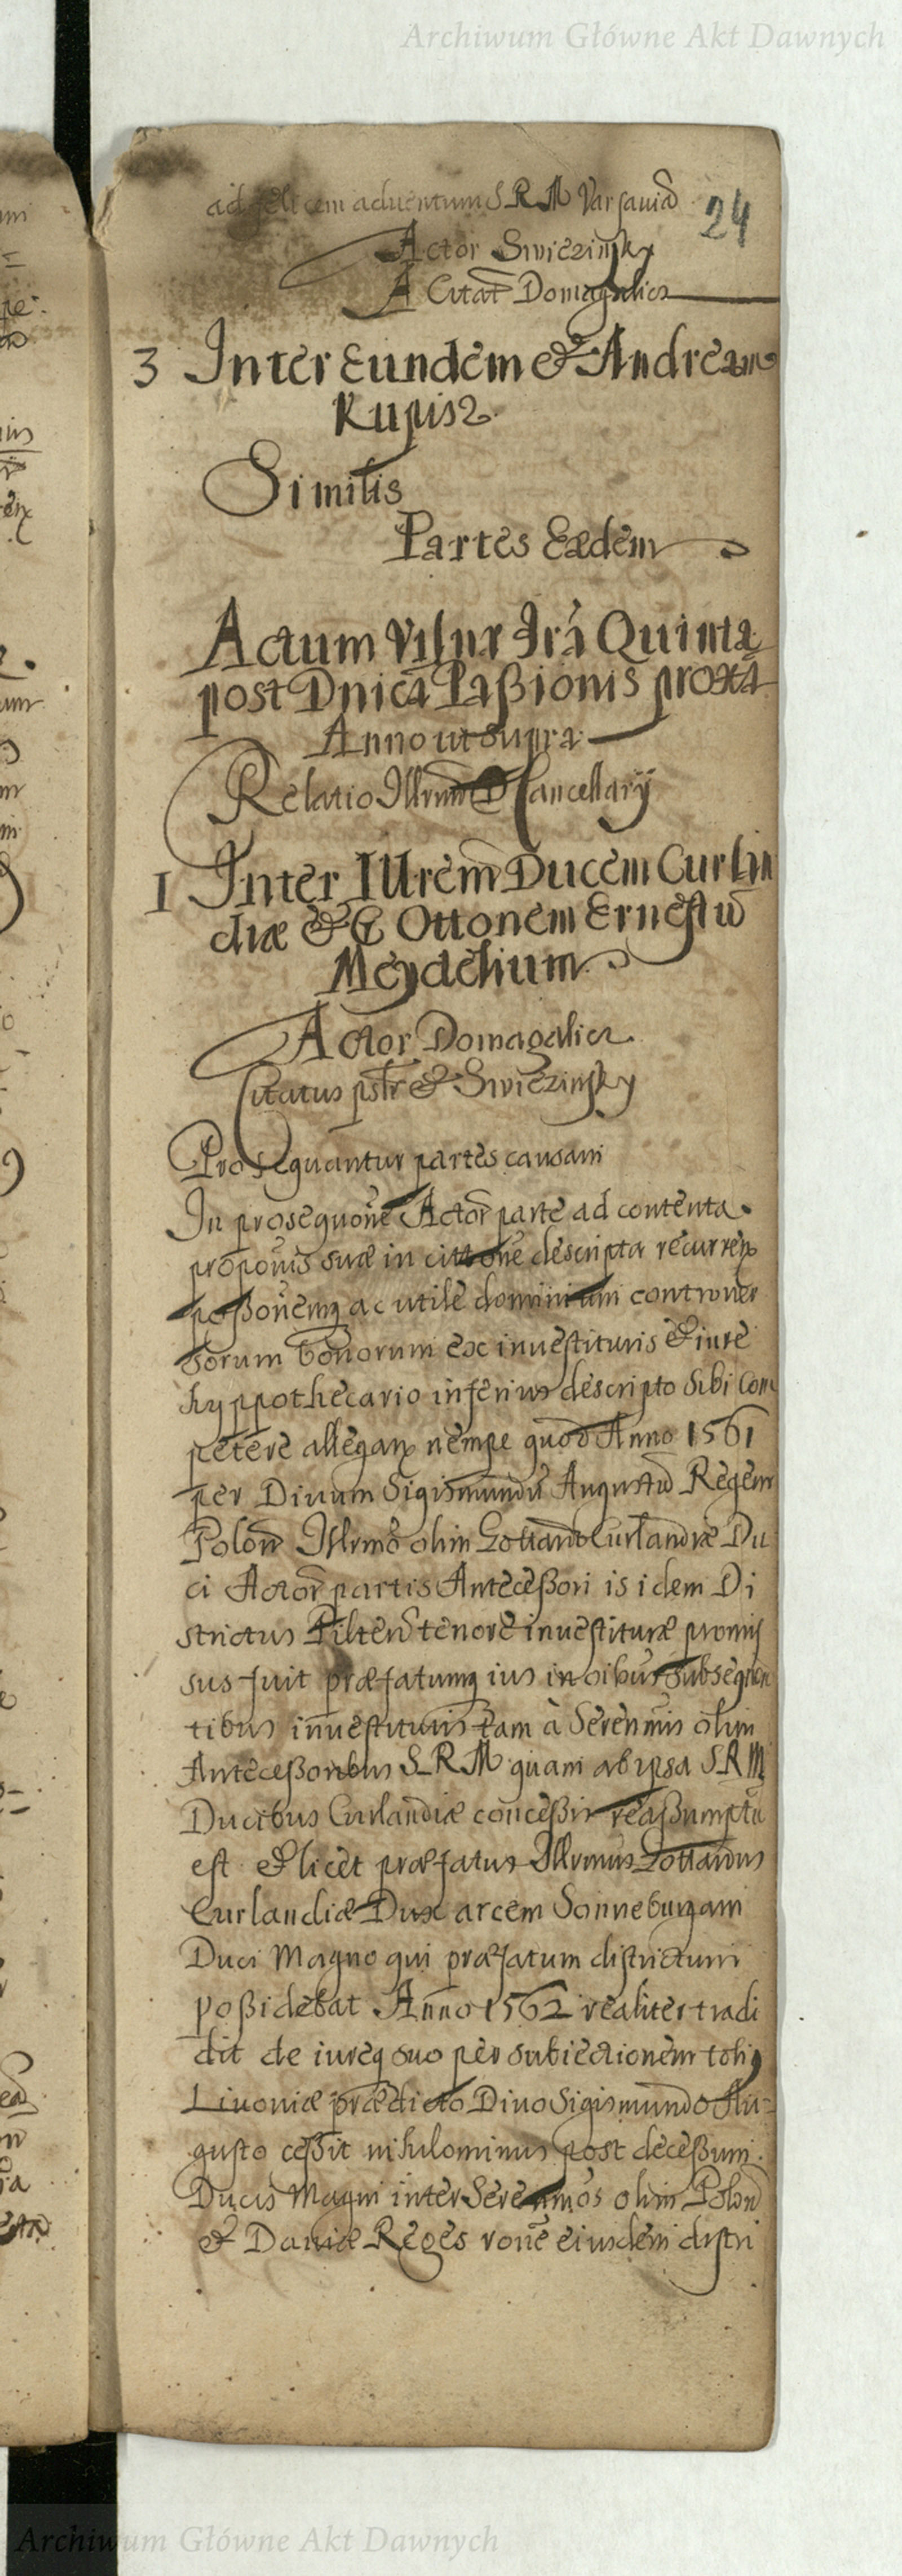 Archiwum Główne Akt Dawnych
ad felicem aduentum S R M Varsauiã
24
Actor Swiezinsky
A Citat Domagalicz
3 Inter Eundem & Andream
Kupisz
Similis
Partes Eædem
Actum Vilnæ Fria Quinta
post Dnicã Paßionis proxã
Anno ut Supra
Relatio Illrmi D Cancellarÿ
1 Inter Illrem Ducem Curlan
diæ & C Ottonem Ernestũ
Meydelium
Actor Domagalicz
Citatus pstr & Swiezinsky
Prosequantur partes causam
In prosequoñe Actor̃ parte ad contenta
propoñis suæ in cittoñe descripta recurreñ
poßoñemq ac utile dominium controuer
sorum bonorum ex inuestituris & iure
hyppothecario inferius descripto Sibi Com
petere allegañ nempe quod Anno 1561
per Diuum Sigismundũ Augustũ Regem
Polon̄ Illrmo olim Gottardo Curlandiæ Du
ci Actor̃ partis Anteceßori is idem Di
strictus Pilten̄ tenore inuestituræ promis
sus fuit præfatumq ius in oibus subsequen
tibus inuestituris tam à Serenmis olim
Anteceßoribus S R M quam ab ipsa S R M
Ducibus Curlandiæ conceßis reaßumptũ
est & licet præfatus Illrmus Gottardus
Curlandiæ Dux arcem Sonneburgam
Duci Magno qui præfatum districtum
poßidebat Anno 1562 realiter tradi
dit de iureq suo per subiectionem totiq
Liuoniæ prædicto Diuo Sigismundo Au-
gusto ceßit nihilominus post deceßum
Ducis Magni inter Serenmos olim Polon̄
& Daniæ Reges roñe eiusdem distri
Archiwum Główne Akt Dawnych